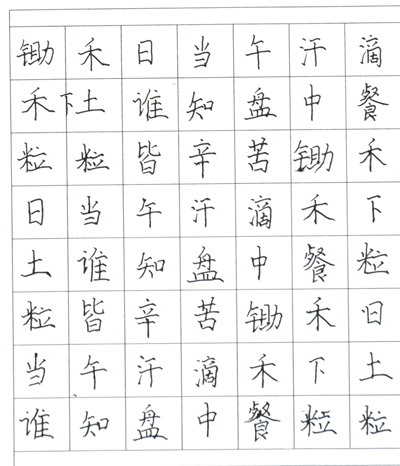 锄禾日当午汗滴
禾下土谁知盘中餐
粒粒皆辛苦锄禾
日当午汗滴禾下
土谁知盘中餐粒
粒皆辛苦锄禾日
当午汗滴禾下土
谁知盘中餐粒粒